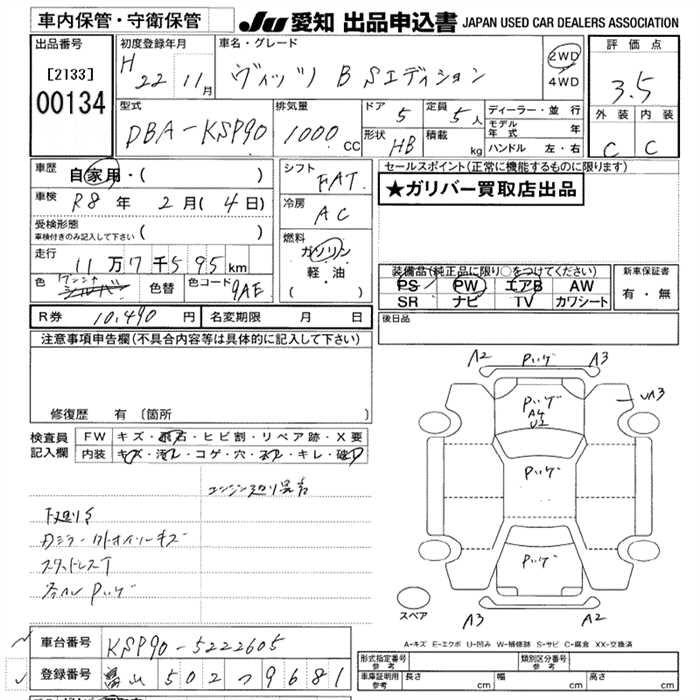 車内保管・守衛保管
JU 愛知 出品申込書 JAPAN USED CAR DEALERS ASSOCIATION
出品番号
[2133]
00134
初度登録年月
H 22 11月
車名・グレード
ヴィッツ B Sエディション
2WD
4WD
評価点
3.5
外装 内装
C C
型式
DBA-KSP90
排気量
1000 cc
ドア 5
形状 HB
定員 5人
積載 kg
ディーラー・並行
モデル年式 年
ハンドル 左・右
車歴 自家用・( )
車検 R8年 2月(4日)
受検形態
車検付きのみ記入して下さい ( )
走行 11万7千595 km
色 シルバー 色替 色コード 9AE
シフト
FAT
冷房
AC
燃料
ガソリン
軽・油
( )
セールスポイント(正常に機能するものに限ります)
★ガリバー買取店出品
装備品(純正品に限り○をつけてください)
PS PW エアB AW
SR ナビ TV カワシート
新車保証書
有・無
R券 10,490円 名変期限 月 日
後日品
注意事項申告欄(不具合内容等は具体的に記入して下さい)
修復歴 有 〔箇所 〕
検査員記入欄
FW キズ・飛石・ヒビ割・リペア跡・X要
内装 キズ・汚れ・コゲ・穴・スレ・キレ・破レ
下廻りS
スタッドレスT
A2 A3
UA3
A4
U2
スペア
A3 A2
A-キズ E-エクボ U-凹み W-補修跡 S-サビ C-腐食 XX-交換済
車台番号 KSP90-5222605
登録番号 富山 502 つ 9681
形式指定番号 参考
類別区分番号 参考
車庫証明用 参考 長さ cm 幅 cm 高さ cm